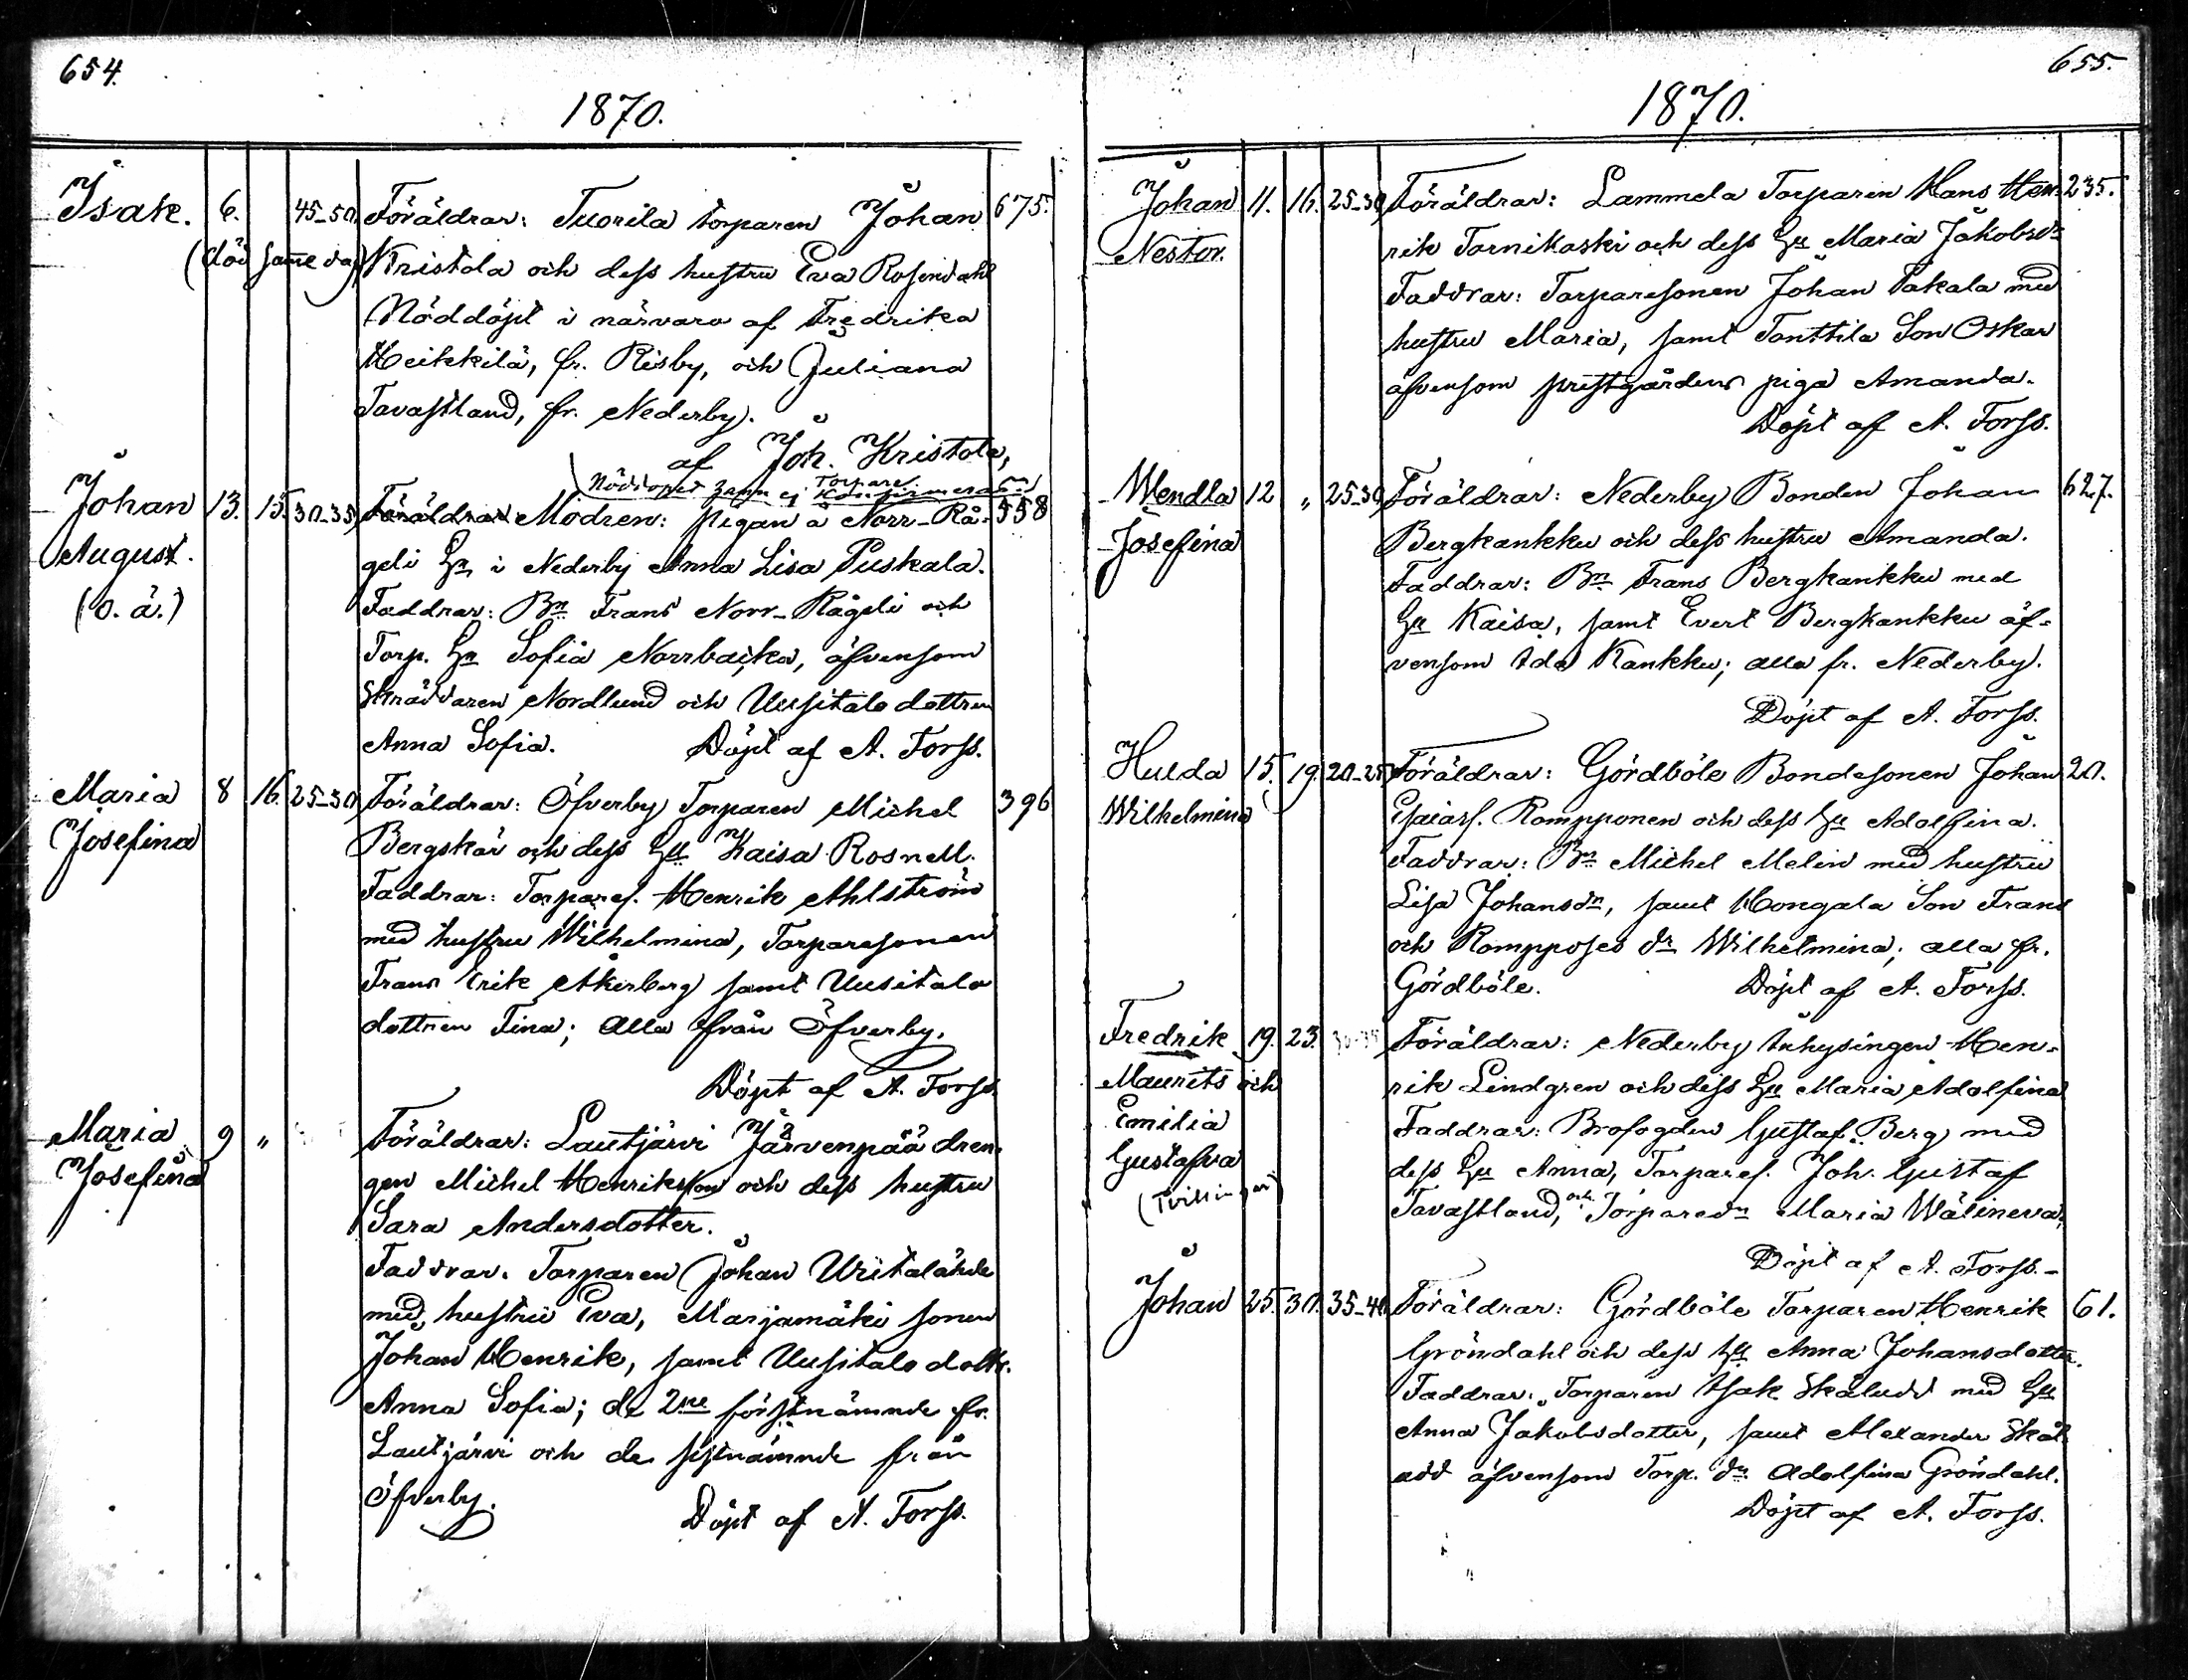 654.
1870.
Isak. 6. 45-50 Föräldrar: Tuorila torparen Johan 675.
(död samme dag) Kristola och dess hustru Eva Rosendahl
Nöddöpt i närvaro af Fredrika
Heikkilä, fr. Risby, och Juliana
Tavastland, fr. Nederby.
af Joh. Kristola,
Torpare.
Johan 13. 15. 30-35 Modren: pigan å Norr-Rå- 558
August. geli Hn i Nederby Anna Lisa Puskala.
(o. ä.) Faddrar: Bn Frans Norr-Rågeli och
Torp. Hn Sofia Norrbacka, äfvensom
Skräddaren Nordlund och Uusitalo dottren
Anna Sofia. Döpt af A. Forss.
Maria 8 16. 25-30 Föräldrar: Öfverby Torparen Michel 396
Josefina Bergskär och dess Hu Kaisa Rosnell.
Faddrar: Torpares. Henrik Ahlström
med hustru Wilhelmina, Torparesonen
Frans Erik Åkerberg samt Uusitalo
dottren Tina; alla från Öfverby.
Döpt af A. Forss.
Maria 9 " Föräldrar: Lautjärvi Järvenpää dren-
Josefina gen Michel Henriksson och dess hustru
Sara Andersdotter.
Faddrar. Torparen Johan
med hustru Eva, Marjamäki sonen
Johan Henrik, samt Uusitalo dottr.
Anna Sofia; de 2ne förstnämnde fr.
Lautjärvi och de sistnämnde från
Öfverby. Döpt af A. Forss.
655.
1870.
Johan 11. 16. 25-30 Föräldrar: Lammela Torparen Hans Hen- 235.
Nestor. rik Tornikoski och dess Hu Maria Jakobsdr
Faddrar: Torparesonen Johan Takala med
hustru Maria, samt Tanttila Son Oskar
äfvensom prestgårdens piga Amanda.
Döpt af A. Forss.
Wendla 12 " 25-30 Föräldrar: Nederby Bonden Johan 627.
Josefina Bergkankku och dess hustru Amanda.
Faddrar: Bn Frans Bergkankku med
Hu Kaisa, samt Evert Bergkankku äf-
vensom Ida Kankku; alla fr. Nederby.
Döpt af A. Forss.
Hulda 15. 19. 20-25 Föräldrar: Gördböle Bondesonen Johan 20.
Wilhelmina Esaiass. Rompponen och dess Hu Adolfina.
Faddrar: Bn Michel Melin med hustru
Lisa Johansdr, samt Hongala Son Frans
och Rompposes dr Wilhelmina; alla fr.
Gördböle. Döpt af A. Forss.
Fredrik 19. 23. 30-35 Föräldrar: Nederby Inhysingen Hen-
Maurits och rik Lindgren och dess Hu Maria Adolfina
Emilia Faddrar: Brofogden Gustaf Berg med
Gustafva dess Hu Anna, Torpares. Joh. Gustaf
(Tvillingar) Tavastland, och Torparedr Maria Wälineva.
Döpt af A. Forss.-
Johan 25. 30. 35-40 Föräldrar: Gördböle Torparen Henrik 61.
Gröndahl och dess Hu Anna Johansdotter.
Faddrar: Torparen Isak Skåludd med Hu
Anna Jakobsdotter, samt Alexander Skål-
udd äfvensom Torp. dr Adolfina Gröndahl.
Döpt af A. Forss.